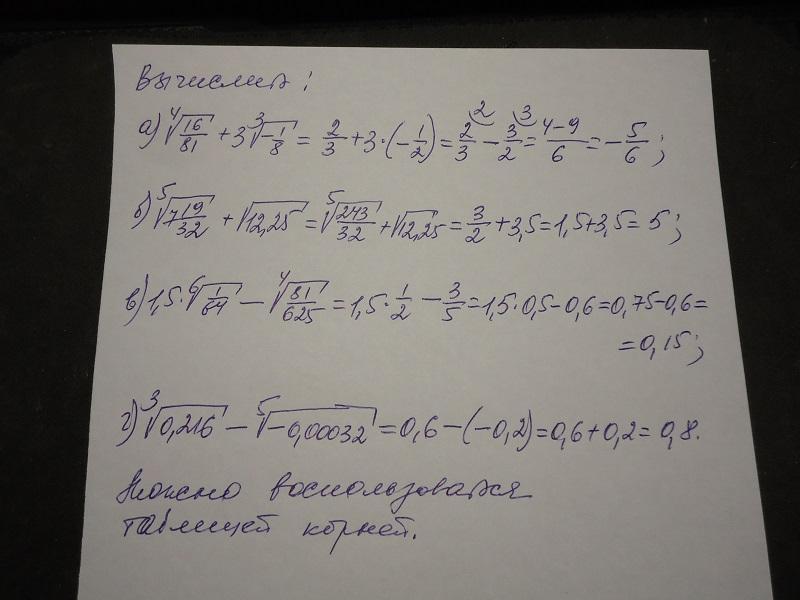 Вычислить:
а) ⁴√(16/81) + 3 ³√(-1/8) = 2/3 + 3·(-1/2) = 2/3 - 3/2 = (4-9)/6 = -5/6;
б) ⁵√(7 19/32) + √12,25 = ⁵√(243/32) + √12,25 = 3/2 + 3,5 = 1,5+3,5 = 5;
в) 1,5·⁶√(1/64) - ⁴√(81/625) = 1,5·1/2 - 3/5 = 1,5·0,5-0,6=0,75-0,6=
=0,15;
г) ³√0,216 - ⁵√-0,00032 = 0,6-(-0,2)=0,6+0,2=0,8.
Можно воспользоваться
таблицей корней.